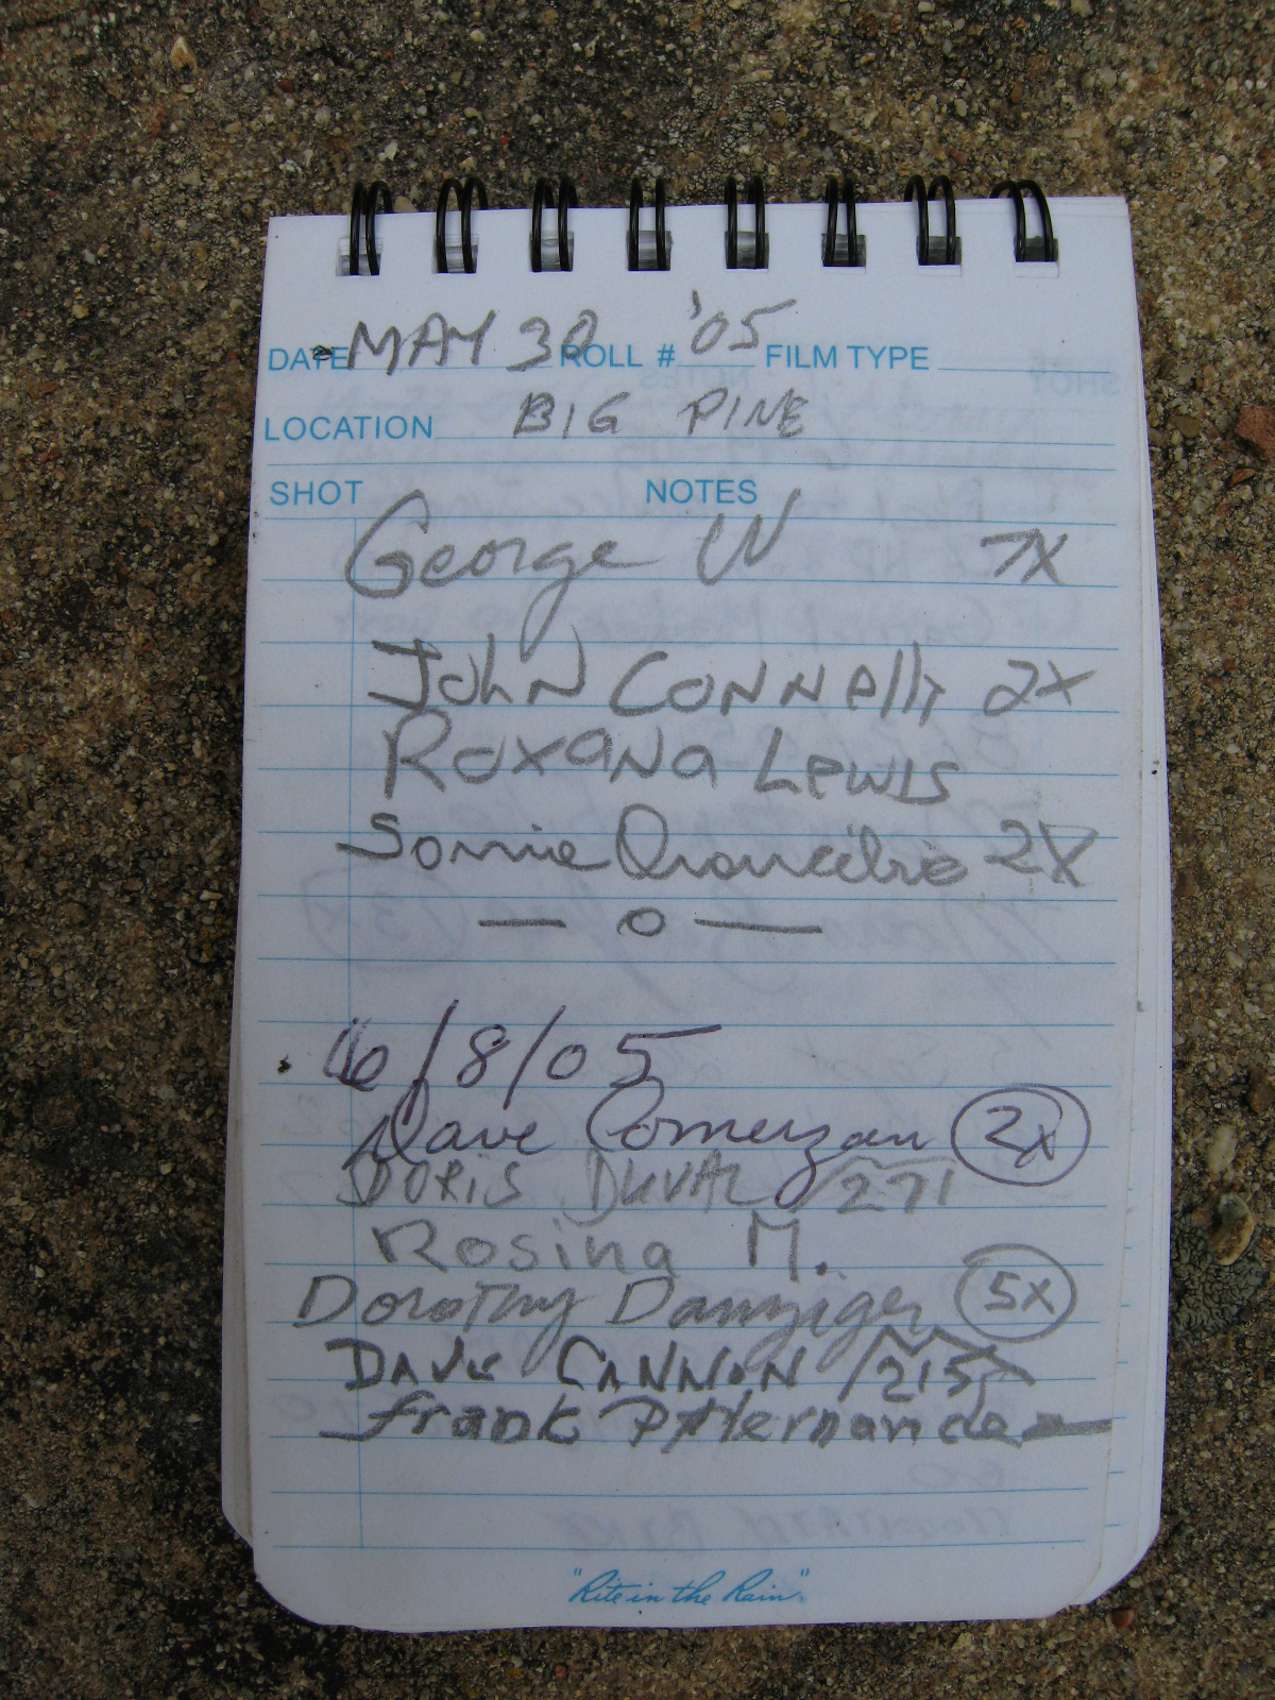 DATE MAY 30 ROLL # '05 FILM TYPE
LOCATION BIG PINE
SHOT NOTES
George W 7X
John Connelly 2X
Roxana Lewis
2X
— o —
6/8/05
Dave 2X
Doris Duval 271
Rosina M.
Dorothy Danziger 5X
Dave Cannon 215
frank P Hernande
"Rite in the Rain"